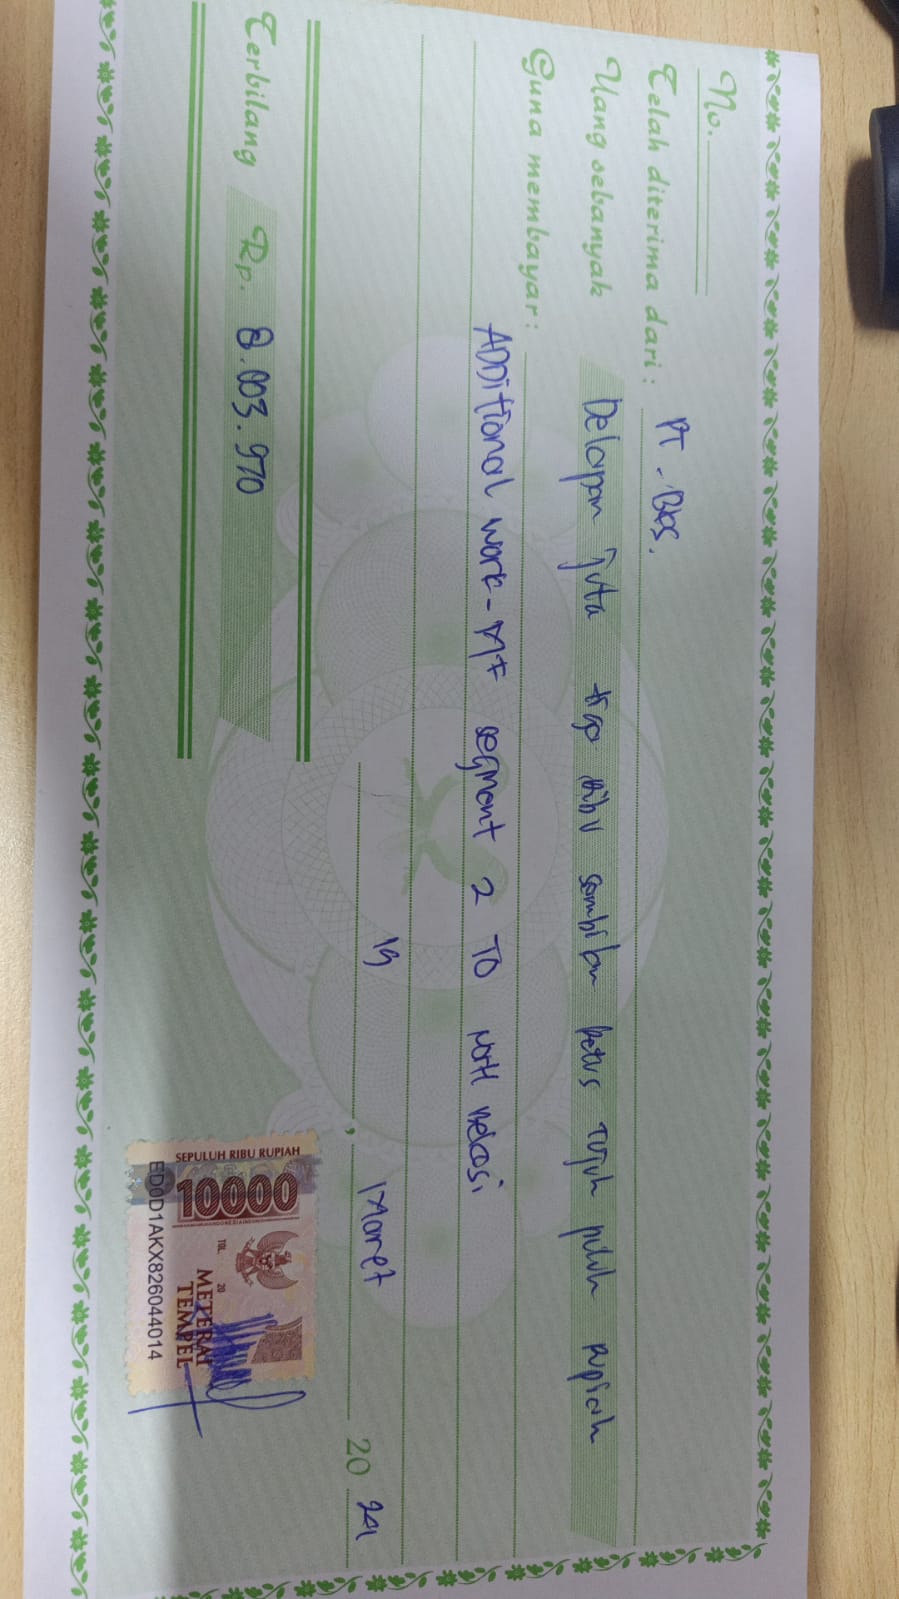 No.
Telah diterima dari : PT - BAS.
Uang sebanyak Delapan juta tiga ribu sembilan Ratus Tujuh puluh Rupiah
Guna membayar :
ADDitional work - MF segment 2 TO North Bekasi
19 , Maret 20 24
Terbilang Rp. 8.003.970
SEPULUH RIBU RUPIAH
10000
TGL. 20
METERAI
TEMPEL
ED0D1AKX826044014